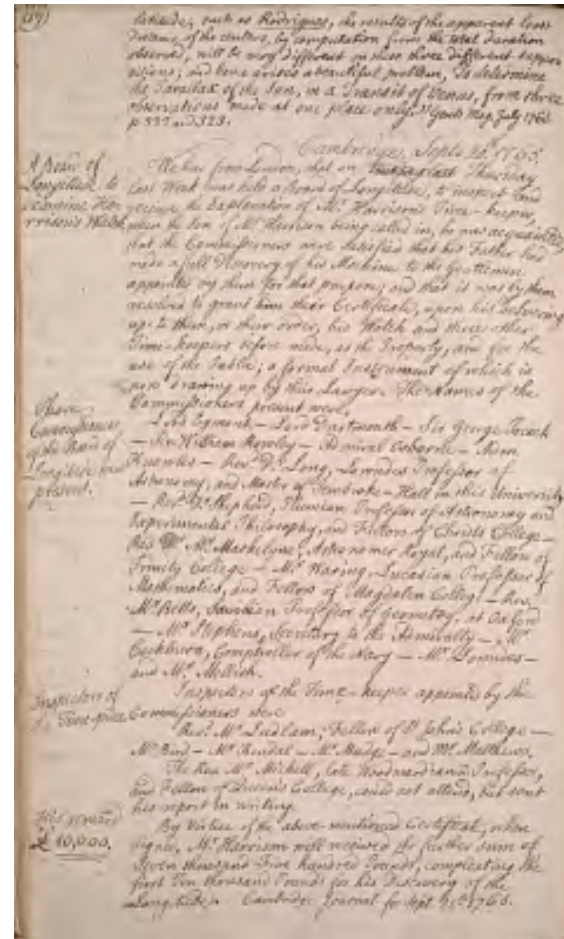 (19)
latitude; such as Rodrigues, the results of the apparent least
Distance of the centers, by computation from the total duration
observed, will be very different in these three different suppo-
sitions; and hence arises a beautiful problem, To determine
the Parallax of the Sun, in a Transit of Venus, from three
observations made at one place only. Gents Mag. July 1763
p. 322 and 323.
Cambridge, Sept. 1765.
A Board of
Longitude to
examine Har-
rison's Watch
We hear from London, that on Thursday
last Week was held a Board of Longitude, to inspect and
receive the Explanation of Mr. Harrison's Time-keeper,
when the Son of Mr. Harrison being called in, he was acquainted
that the Commissioners were satisfied that his Father had
made a full Discovery of his Machine to the Gentlemen
appointed by them for that purpose; and that it was by them
resolved to grant him their Certificate, upon his delivering
up to them, or their order, his Watch and three other
Time-keepers before made, as the Property, and for the
use of the Public; a formal Instrument of which is
now drawing up by their Lawyer. The Names of the
Commissioners present were,
Commissioners
of the Board of
Longitude
present.
Lord Egmont — Lord Dartmouth — Sir George Pocock
— Sir William Rowley — Admiral Osborne — Adm.
Knowles — Revd. Dr. Long, Lowndes Professor of
Astronomy, and Master of Pembroke-Hall in this University
— Revd. Dr. Shepherd, Plumian Professor of Astronomy and
Experimental Philosophy, and Fellow of Christs College —
Rev. Mr. Maskelyne, Astronomer Royal, and Fellow of
Trinity College — Mr. Waring, Lucasian Professor of
Mathematics, and Fellow of Magdalen College — Rev.
Mr. Betts, Savilian Professor of Geometry, at Oxford
— Mr. Stephens, Secretary to the Admiralty — Mr.
Cockburn, Comptroller of the Navy — Mr. Lowndes —
and Mr. Mellish.
Inspectors of
the Time-piece
Inspectors of the Time-keeper appointed by the
Commissioners were
Revd. Mr. Ludlam, Fellow of St. John's College —
Mr. Bird — Mr. Kendal — Mr. Mudge — and Mr. Matthews.
The Rev. Mr. Michell, late Woodwardian Professor,
and Fellow of Queen's College, could not attend, but sent
his report in writing.
His reward
£ 10,000.
By Virtue of the above-mentioned Certificate, when
signed, Mr. Harrison will received the further sum of
Seven thousand Five hundred Pounds, compleating the
first Ten thousand Pounds for his Discovery of the
Longitude. Cambridge Journal for Sept. 1765.